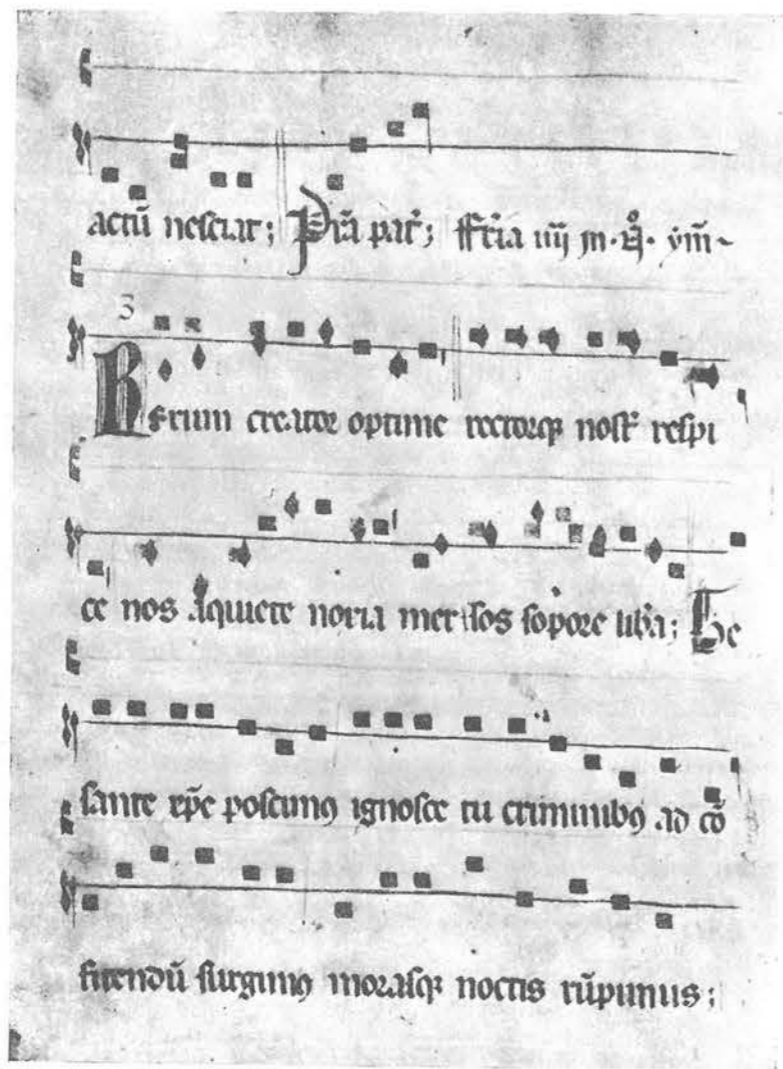 actū nesciat; pat᷑; iiij ym̄
3
Rerum creator optime rectorqꝫ nost᷑ respi
ce nos aquiete noxia mersos sopore lib̄a; Te
sancte xp̄e poscimꝰ ignosce tu criminibꝰ ad cō
fitendū surgimꝰ morasqꝫ noctis rūpimus;